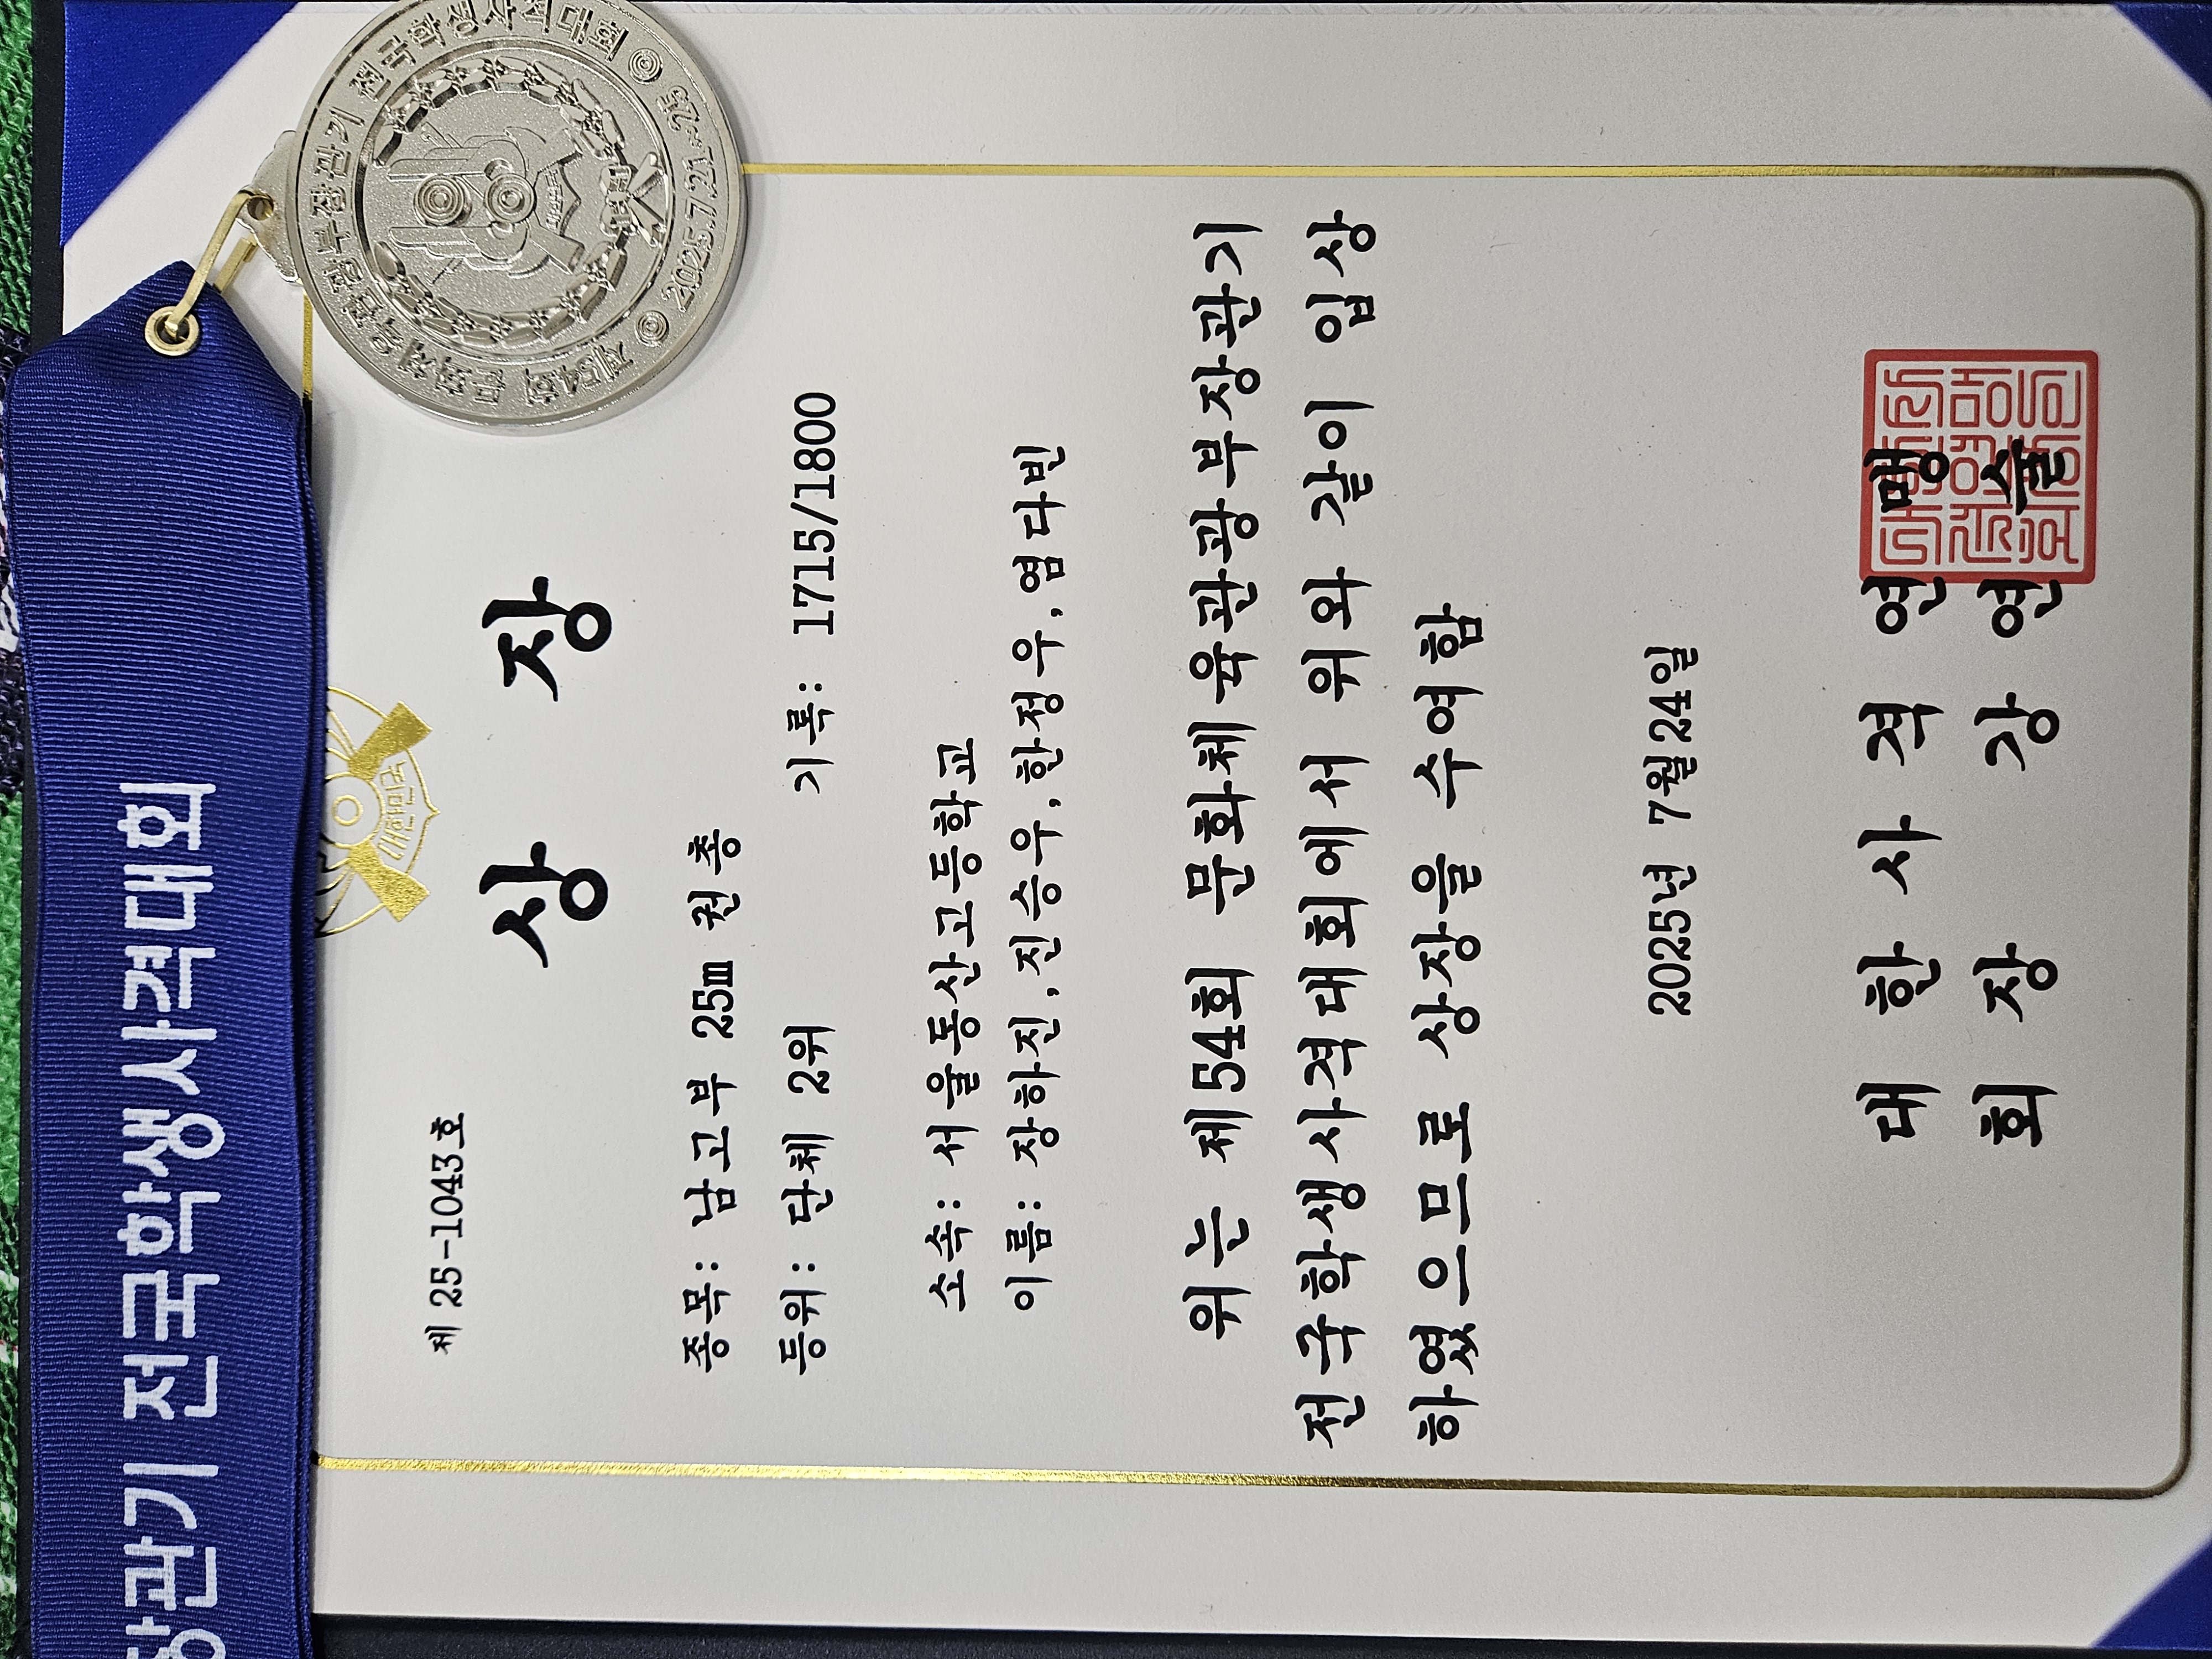 장관기 전국학생사격대회
제54회 문화체육관광부장관기 전국학생사격대회
2025.7.21.~7.25
대한민국
제 25-1043호
상 장
종목: 남고부 25m 권총
등위: 단체 2위 기록: 1715/1800
소속: 서울동산고등학교
이름: 장하진,진승우,한정우,염다빈
위는 제54회 문화체육관광부장관기
전국학생사격대회에서 위와 같이 입상
하였으므로 상장을 수여함
2025년 7월24일
대 한 사 격 연 맹
회 장 강 연 술